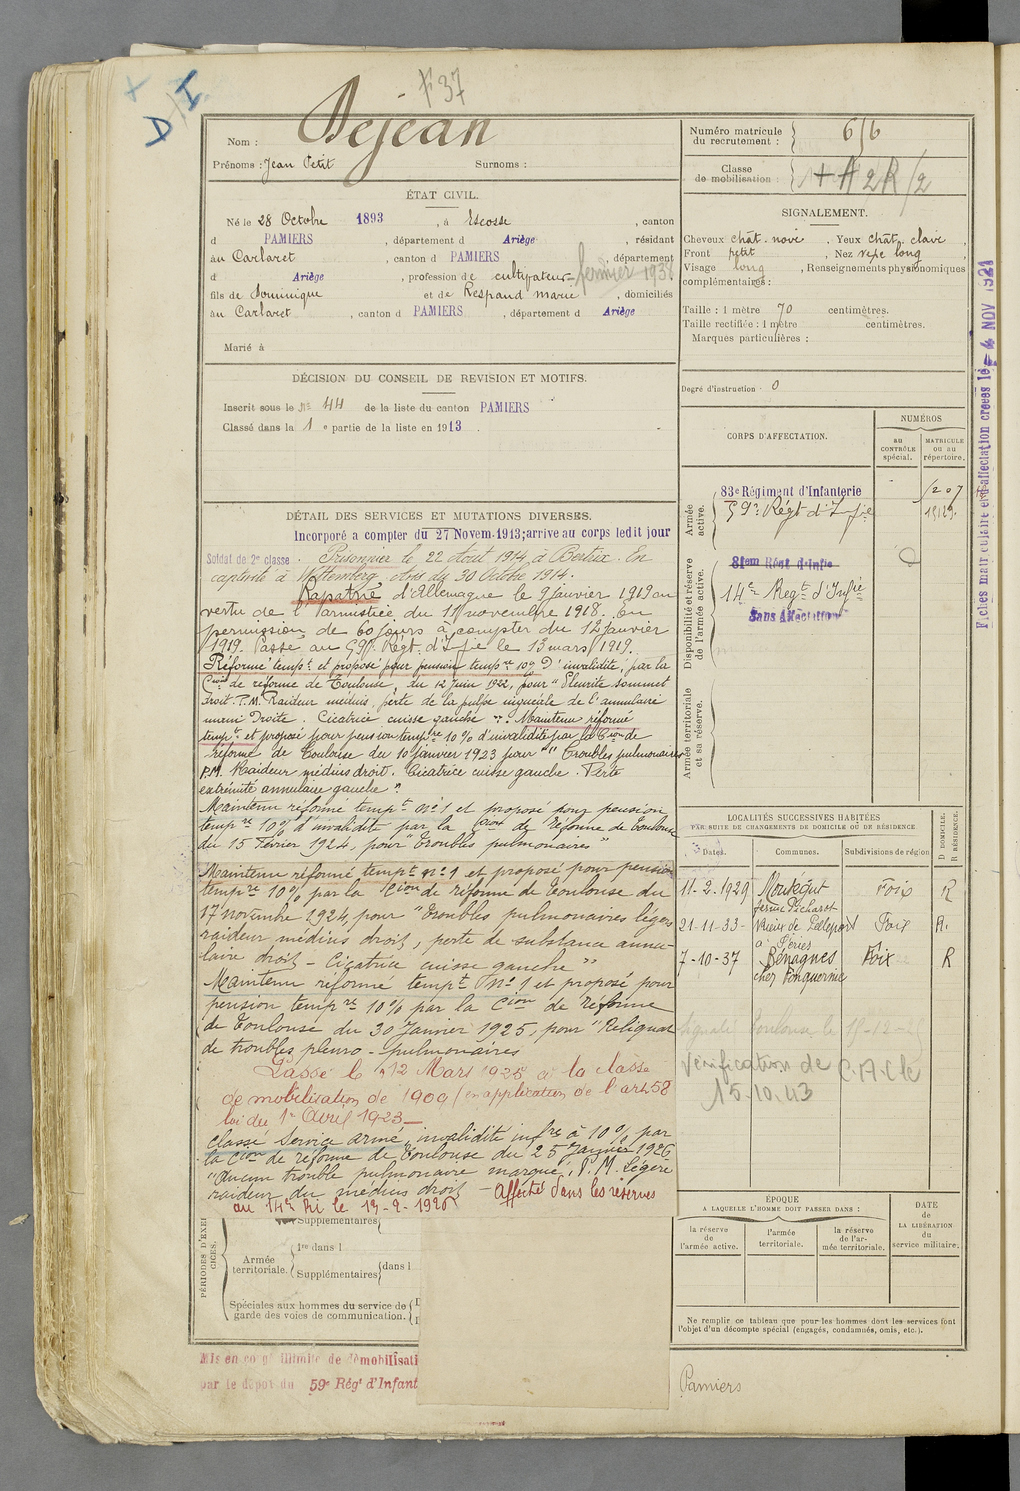 F 37
I
D
Nom : Dejean
Prénoms : Jean Petit Surnoms :
ÉTAT CIVIL.
Né le 28 Octobre 1893, à Escosse, canton
d PAMIERS, département d Ariège, résidant
au Carlaret, canton d PAMIERS, département
d Ariège, profession de cultivateur fermier 1938
fils de Dominique et de Respaud Marie, domiciliés
au Carlaret, canton d PAMIERS, département d Ariège
Marié à
DÉCISION DU CONSEIL DE REVISION ET MOTIFS.
Inscrit sous le No 44 de la liste du canton PAMIERS
Classé dans la 1e partie de la liste en 1913.
DÉTAIL DES SERVICES ET MUTATIONS DIVERSES.
Incorporé a compter du 27 Novem. 1913; arrive au corps ledit jour
Soldat de 2e classe. Prisonnier le 22 Août 1914 à Bertrix. En
captivité à Wittemberg. Avis du 30 Octobre 1914.
Rapatrié d'Allemagne le 9 janvier 1919 en
vertu de l'armistice du 11 novembre 1918. En
permission de 60 jours à compter du 12 janvier
1919. Passé au 59e Régt d'Infie le 13 mars 1919.
Réformé tempt et proposé pour pension tempre 10% d'invalidité, par la
Cion de réforme de Toulouse, du 12 Juin 1922, pour "Pleurite sommet
droit. P.M. Raideur médius, perte de la pulpe unguéale de l'annulaire
main Droite. Cicatrice cuisse gauche". Maintenu réformé
tempt et proposé pour pension tempre 10% d'invalidité par la Cion de
réforme de Toulouse du 10 janvier 1923 pour "Troubles pulmonaires
P.M. Raideur médius droit. Cicatrice cuisse gauche. Perte
extrémité annulaire gauche".
Maintenu réformé tempt no 1 et proposé pour pension
tempre 10% d'invalidité par la Cion de Réforme de Toulouse
du 15 Février 1924, pour "Troubles pulmonaires"
Maintenu réformé tempt no 1 et proposé pour pension
tempre 10% par la Cion de réforme de Toulouse du
17 novembre 1924, pour "Troubles pulmonaires légers
raideur médius droit, perte de substance annu-
laire droit - Cicatrice cuisse gauche"
Maintenu réformé tempt No 1 et proposé pour
pension tempre 10% par la Cion de Réforme
de Toulouse du 30 Janvier 1925, pour "Reliquat
de troubles pleuro-pulmonaires
Passé le 12 Mars 1925 à la classe
de mobilisation de 1909 (en application de l'art. 58
loi du 1er Avril 1923
Classé Service armé, invalidité infre à 10% par
la Cion de réforme de Toulouse du 25 Janvier 1926
"Aucun trouble pulmonaire marqué; P.M. Légère
raideur du médius droit - Affecté dans les réserves
au 14e RI le 13-2-1926
PÉRIODES D'EXERCICES.
Supplémentaires
Armée territoriale.
1re dans l
Supplémentaires dans l
Spéciales aux hommes du service de
garde des voies de communication.
Mis en congé illimité de démobilisati
par le dépot du 59e Régt d'Infant
Numéro matricule du recrutement : 616
Classe de mobilisation :
SIGNALEMENT.
Cheveux chât. noir, Yeux chât. clair,
Front petit, Nez long,
Visage long, Renseignements physionomiques
complémentaires :
Taille : 1 mètre 70 centimètres.
Taille rectifiée : 1 mètre centimètres.
Marques particulières :
Degré d'instruction 0
CORPS D'AFFECTATION.
NUMÉROS
au CONTRÔLE spécial.
MATRICULE ou au répertoire.
Armée active.
83e Régiment d'Infanterie 1207
59e Régt d'Infie 15129.
Disponibilité et réserve de l'armée active.
81em Régt d'Infie
14e Regt d'Infie
Sans Affectation
Armée territoriale et sa réserve.
Fiches matriculaire et d'affectation créées le - 4 NOV 1921
LOCALITÉS SUCCESSIVES HABITÉES
PAR SUITE DE CHANGEMENTS DE DOMICILE OU DE RÉSIDENCE
Dates. Communes. Subdivisions de région D DOMICILE. R RÉSIDENCE.
11-2-1929 Montégut Foix R
ferme Picharot
21-11-33- Rieux de Pelleport Foix R.
7-10-37 Bénagues Foix R
chez
Toulouse le
Vérification de
15.10.43
ÉPOQUE
A LAQUELLE L'HOMME DOIT PASSER DANS :
la réserve de l'armée active.
l'armée territoriale.
la réserve de l'armée territoriale.
DATE de LA LIBÉRATION du service militaire.
Ne remplir ce tableau que pour les hommes dont les services font
l'objet d'un décompte spécial (engagés, condamnés, omis, etc.).
Pamiers